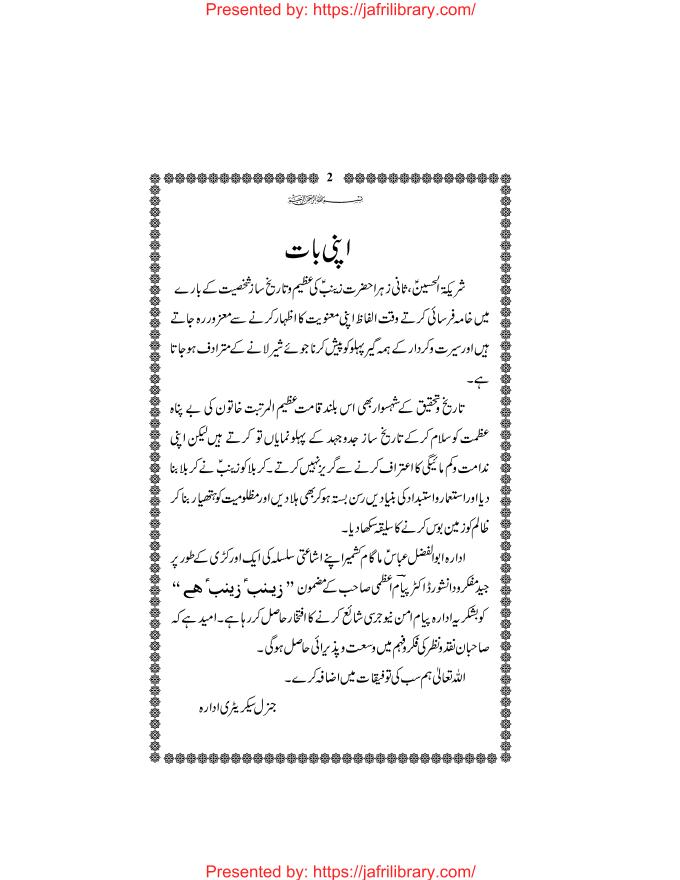 Presented by: https://jafrilibrary.com/
2
اپنی بات
شریکۃ الحسینؑ، ثانی زہرا حضرت زینبؑ کی عظیم و تاریخ ساز شخصیت کے بارے
میں خامہ فرسائی کرتے وقت الفاظ اپنی معنویت کا اظہار کرنے سے معزور رہ جاتے
ہیں اور سیرت و کردار کے ہمہ گیر پہلو کو پیش کرنا جوئے شیر لانے کے مترادف ہو جاتا
ہے۔
تاریخ و تحقیق کے شہسوار بھی اس بلند قامت عظیم المرتبت خاتون کی بے پناہ
عظمت کو سلام کر کے تاریخ ساز جدوجہد کے پہلو نمایاں تو کرتے ہیں لیکن اپنی
ندامت و کم مائیگی کا اعتراف کرنے سے گریز نہیں کرتے۔ کربلا کو زینبؑ نے کربلا بنا
دیا اور استعمار و استبداد کی بنیادیں رسن بستہ ہو کر بھی ہلا دیں اور مظلومیت کو ہتھیار بنا کر
ظالم کو زمین بوس کرنے کا سلیقہ سکھا دیا۔
ادارہ ابوالفضل عباسؑ ماگام کشمیر اپنے اشاعتی سلسلہ کی ایک اور کڑی کے طور پر
جید مفکر و دانشور ڈاکٹر پیامؔ اعظمی صاحب کے مضمون ”زینبؑ زینبؑ ھے“
کو بشکریہ ادارہ پیام امن نیوجرسی شائع کرنے کا افتخار حاصل کر رہا ہے۔ امید ہے کہ
صاحبان نقد و نظر کی فکر و فہم میں وسعت و پذیرائی حاصل ہوگی۔
اللہ تعالیٰ ہم سب کی توفیقات میں اضافہ کرے۔
جنرل سیکریٹری ادارہ
Presented by: https://jafrilibrary.com/